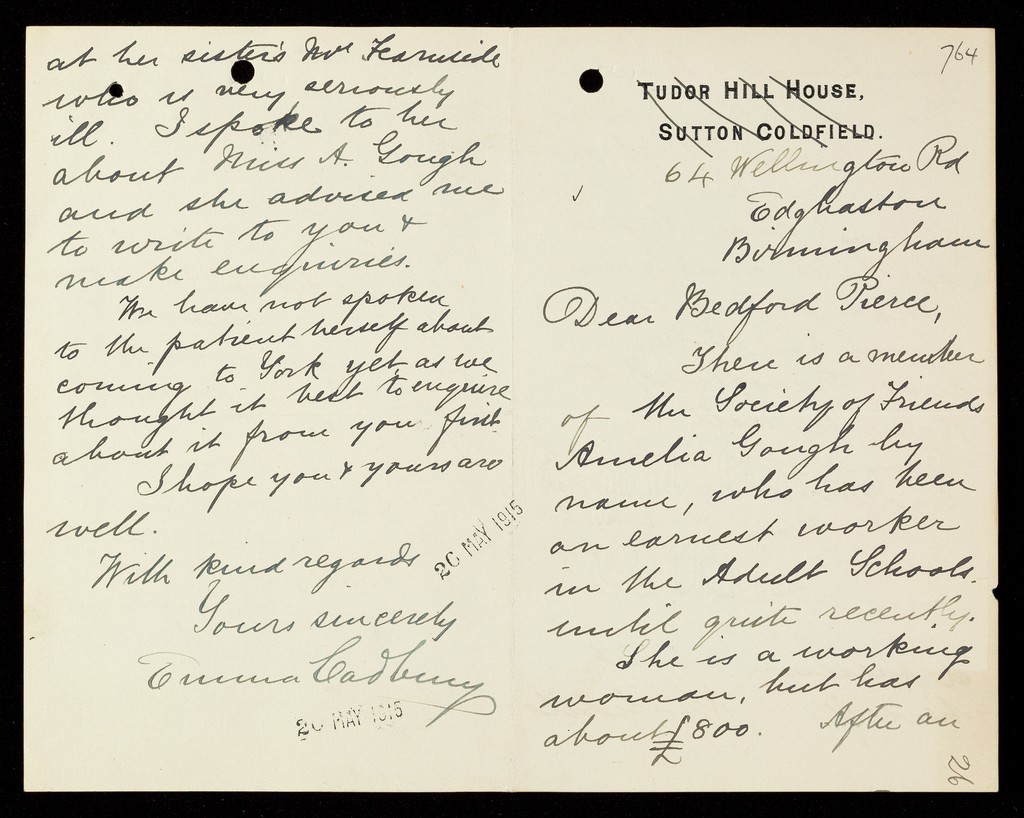 764
TUDOR HILL HOUSE,
SUTTON COLDFIELD.
64 Wellington Rd
Edgbaston
Birmingham
Dear Bedford Pierce,
There is a member
of the Society of Friends
Amelia Gough by
name, who has been
an earnest worker
in the Adult Schools.
until quite recently.
She is a working
woman, but has
about £800. After an
26
at her sister's Mrs
who is very seriously
ill. I spoke to her
about Miss A. Gough
and she advised me
to write to you &
make enquiries.
We have not spoken
to the patient herself about
coming to York yet, as we
thought it best to enquire
about it from you first
I hope you & yours are
well.
With kind regards
Yours sincerely
Emma Cadbury
20 MAY 1915
20 MAY 1915